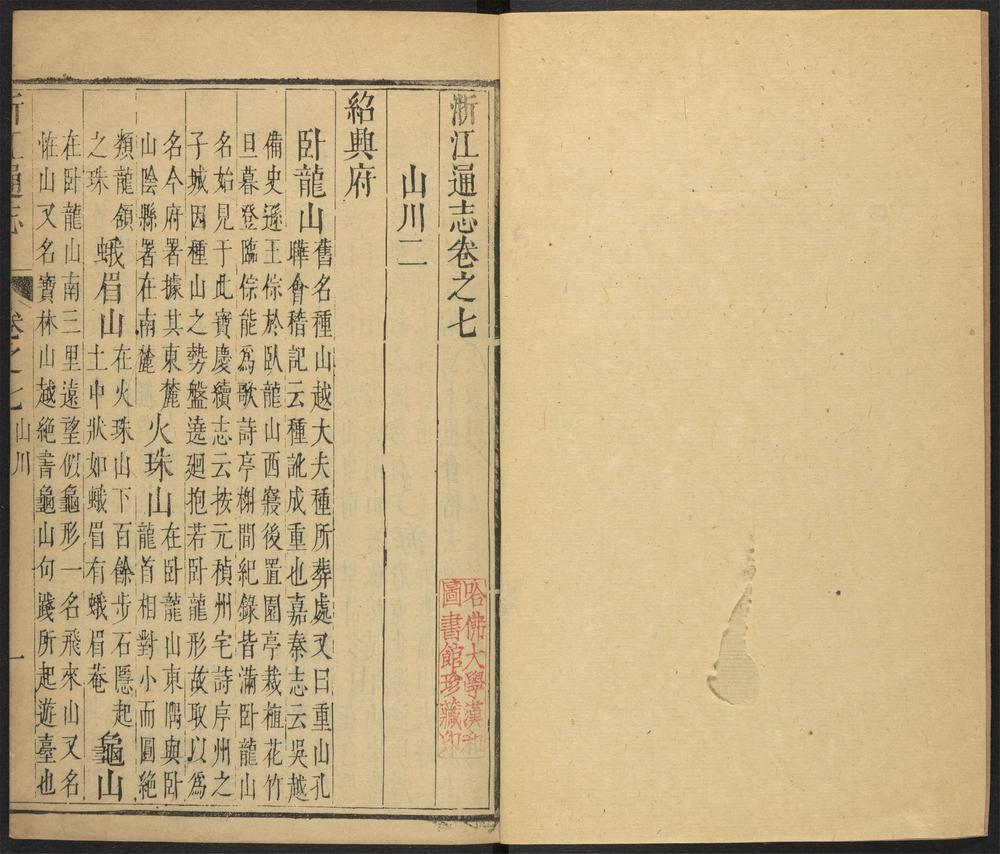 浙江通志卷之七
山川二
紹興府
卧龍山
舊名種山越大夫種所葬處又曰重山孔
曄會稽記云種訛成重也嘉泰志云吳越
備史遜王倧於臥龍山西寢後置園亭栽植花竹
旦暮登臨倧能爲歌詩亭榭間紀錄皆滿卧龍山
名始見于此寶慶續志云按元稹州宅詩序州之
子城因種山之勢盤遶廻抱若卧龍形故取以爲
名今府署據其東麓
山陰縣署在南麓
火珠山
在卧龍山東隅與卧
龍首相對小而圓絶
類龍頷
之珠
蛾眉山
在火珠山下百餘步石隱起
土中狀如蛾眉有蛾眉菴
龜山
在卧龍山南三里遠望似龜形一名飛來山又名
恠山又名寶林山越絶書龜山句踐所起遊臺也
浙江通志
卷之七
山川
一
哈佛大學漢和
圖書館珍藏印